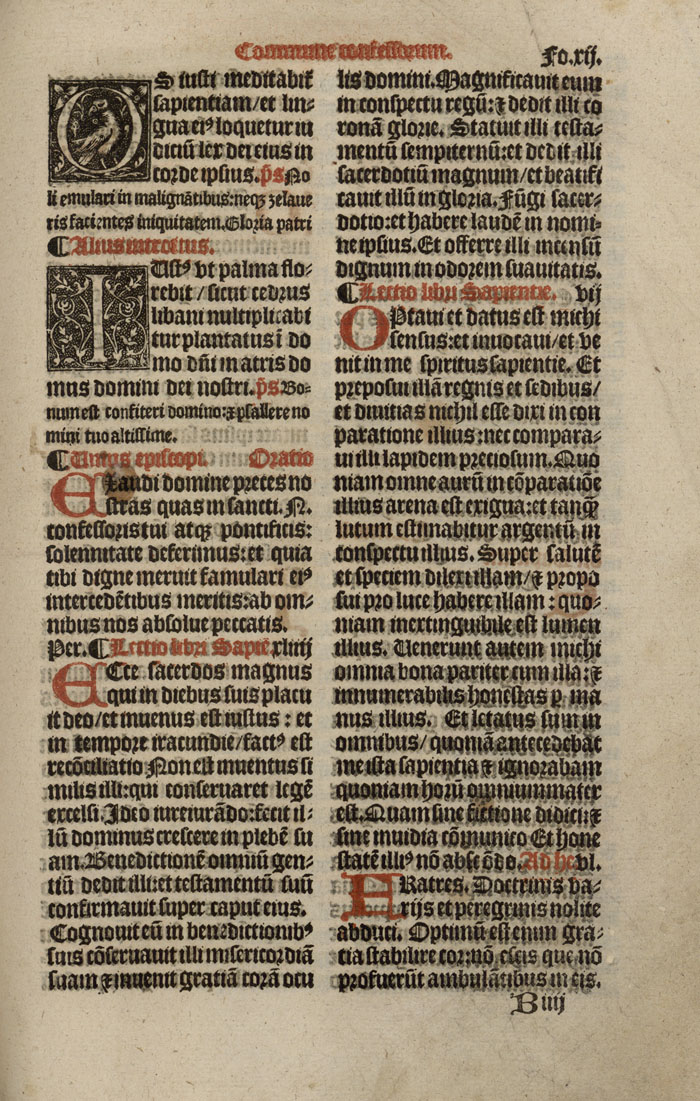 Commune confessorum.
Fo.xij.
OS iusti meditabit᷑
sapientiam/et lin⸗
gua eiꝰ loquetur iu
diciũ lex dei eius in
corde ipsius. p̃s No
li emulari in malignãtibus: neqꝫ zelaue
ris faciẽntes iniquitatem. Gloria patri
¶Alius introitus.
IUstꝰ vt palma flo⸗
rebit / sicut cedrus
libani multiplicabi
tur plantatus ĩ do
mo dñi in atris do
mus domini dei nostri. p̃s Bo⸗
num est confiteri domino: ⁊ psallere no
mini tuo altissime.
¶Unius episcopi. Oratio
EXaudi domine preces no
stras quas in sancti. N.
confessoris tui atqꝫ pontificis:
solennitate deferimus: et quia
tibi digne meruit famulari eiꝰ
intercedẽtibus meritis: ab om⸗
nibus nos absolue peccatis.
Per. ¶Lectio libri Sapiẽ. xliiij
ECce sacerdos magnus
qui in diebus suis placu
it deo/et inuenus est iustus : et
in tempore iracundie/factꝰ est
recõciliatio Non est inuentus si
milis illi: qui conseruaret legẽ
excelsi. Ideo iureiurãdo: fecit il⸗
lũ dominus crescere in plebẽ su
am. Benedictionẽ omniũ gen⸗
tiũ dedit illi: et testamentũ suũ
confirmauit super caput eius.
Cognouit eũ in benedictionibꝰ
suis cõseruauit illi misericordiã
suam ⁊ inuenit gratiã corã ocu
lis domini. Magnificauit eum
in conspectu regũ: ⁊ dedit illi co
ronã glorie. Statuit illi testa⸗
mentũ sempiternũ: et dedit illi
sacerdotiũ magnum/ et beatifi
cauit illũ in gloria. Fũgi sacer⸗
dotio: et habere laudẽ in nomi⸗
ne ipsius. Et offerre illi incensũ
dignum in odorem suauitatis.
¶Lectio libri Sapientie. vij
OPtaui et datus est michi
sensus: et inuocaui/et ve
nit in me spiritus sapientie. Et
preposui illã regnis et sedibus/
et diuitias nichil esse dixi in con
paratione illius: nec compara⸗
ui illi lapidem preciosum. Quo
niam omne aurũ in cõparatiõe
illius arena est exigua: et tanqꝫ
lutum estimabitur argentũ in
conspectu illius. Super salutẽ
et speciem dilexi illam/⁊ propo
sui pro luce habere illam : quo⸗
niam inextinguibile est lumen
illius. Uenerunt autem michi
omnia bona pariter cum illa: ⁊
innumerabilis honestas ꝑ ma
nus illius. Et letatus sum in
omnibus/ quoniã antecedebat
me ista sapientia ⁊ ignorabam
quoniam horũ omnium mater
est. Quam sine fictione didici: ⁊
sine inuidia cõmunico Et hone
statẽ illiꝰ nõ abscõdo. Ad he vl.
FRatres. Doctrinis va⸗
rijs et peregrinis nolite
abduci. Optimũ est enim gra⸗
tia stabilire cor: nõ escis que nõ
profuerũt ambulãtibus in eis.
B iiij